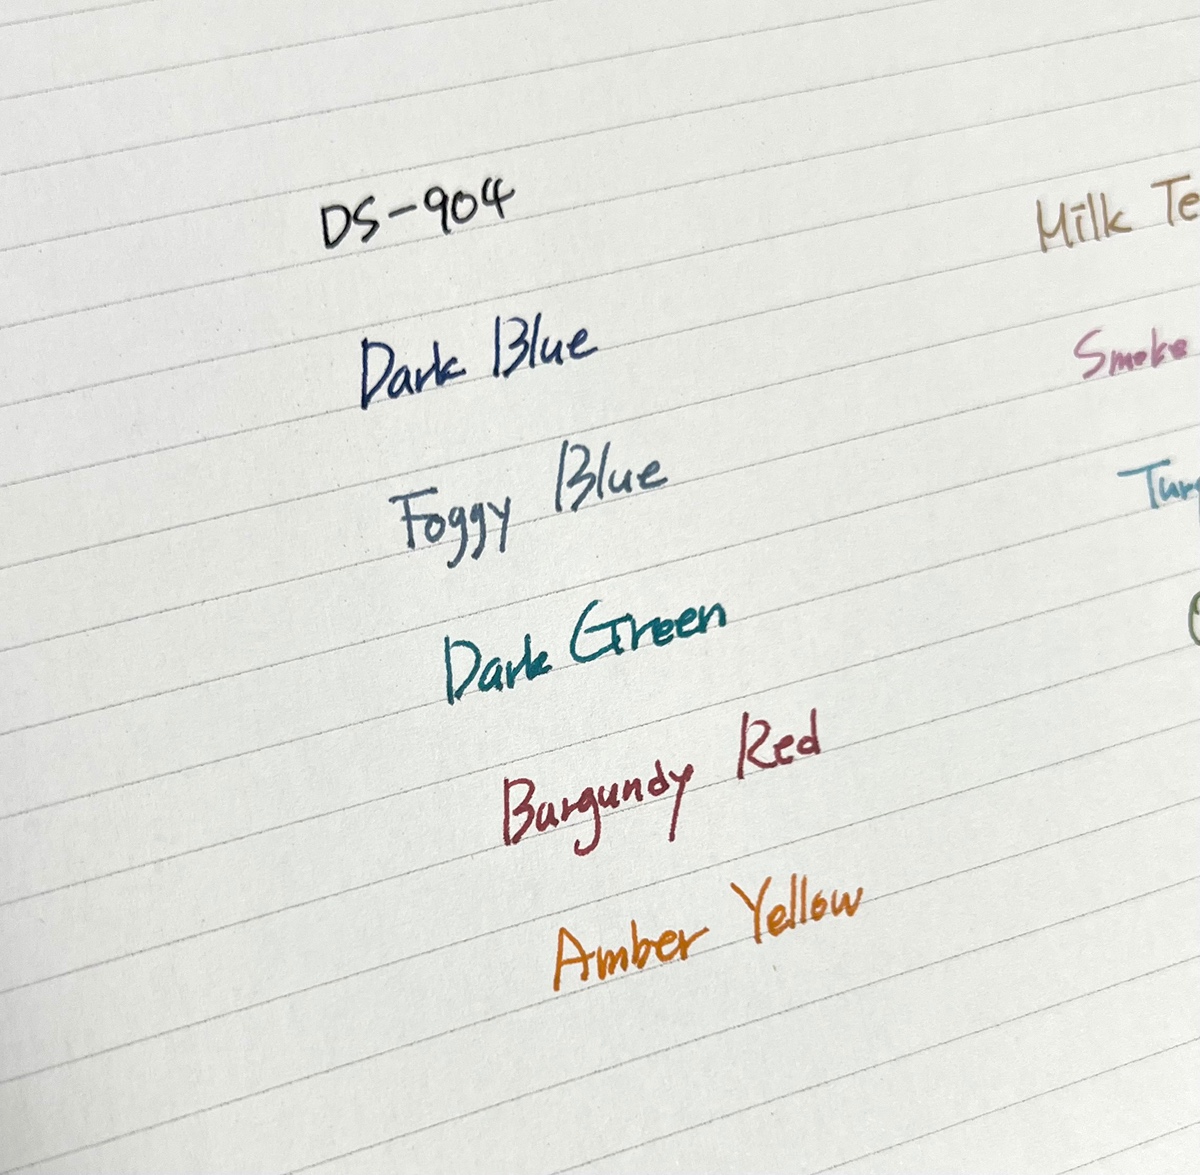 DS-904
Dark Blue
Foggy Blue
Dark Green
Burgundy Red
Amber Yellow
Milk Te
Smoke
Turq